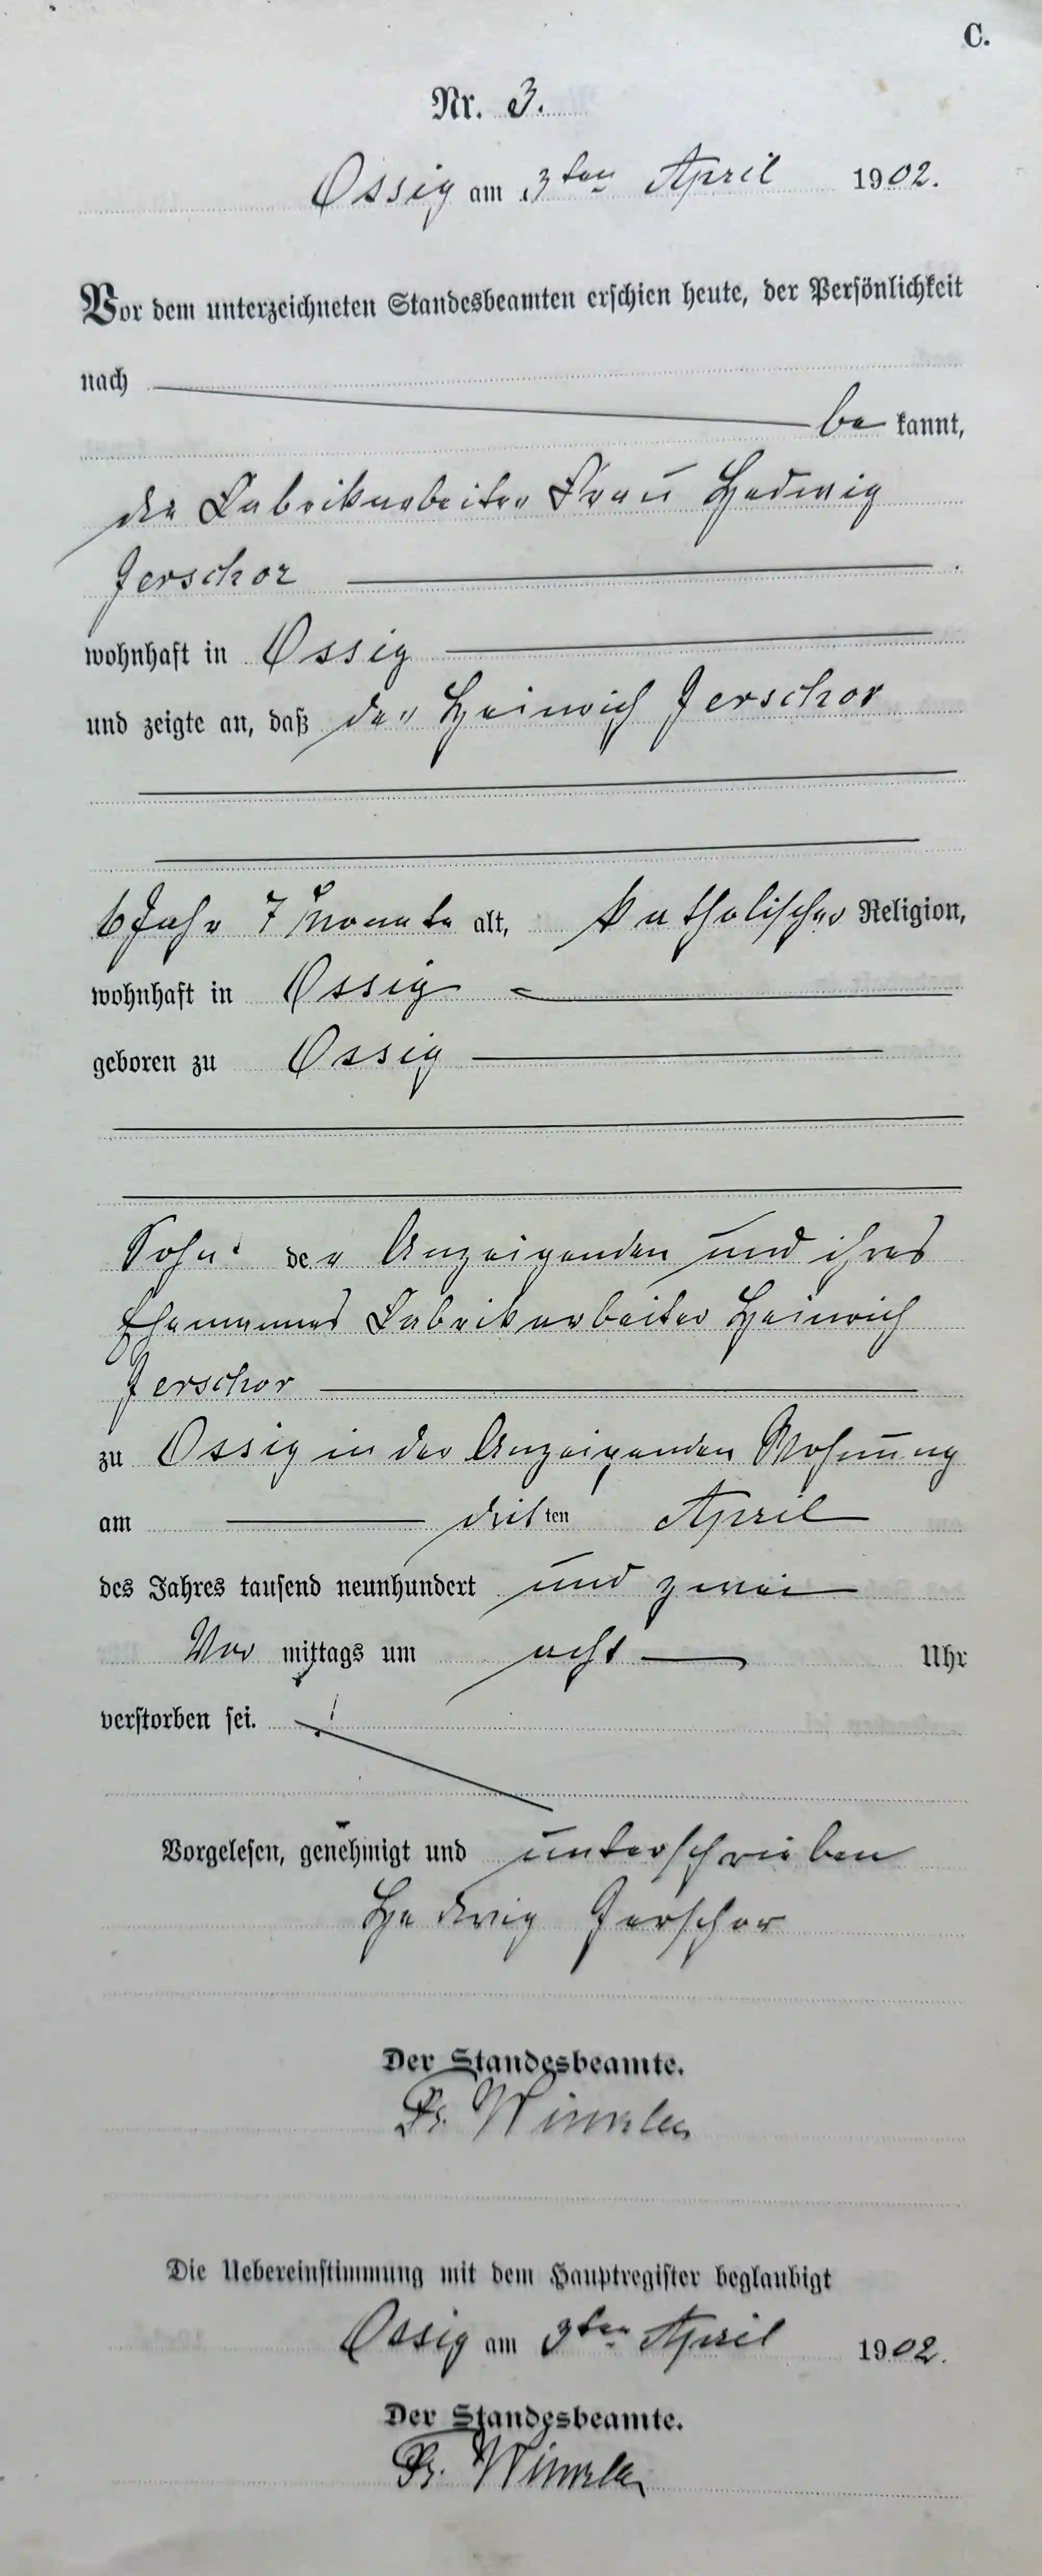 C.
Nr. 3.
Ossig am 3ten April 1902.
Vor dem unterzeichneten Standesbeamten erschien heute, der Persönlichkeit
nach
be kannt,
die Fabrikarbeiter Frau Hedwig
Jerschor
wohnhaft in Ossig
und zeigte an, daß der Heinrich Jerschor
6 Jahr 7 Monate alt, katholischer Religion,
wohnhaft in Ossig
geboren zu Ossig
Sohn der Anzeigenden und ihres
Ehemannes Fabrikarbeiter Heinrich
Jerschor
zu Ossig in der Anzeigenden Wohnung
am dritten April
des Jahres tausend neunhundert und zwei
Vor mittags um acht Uhr
verstorben sei.
Vorgelesen, genehmigt und unterschrieben
Hedwig Jerschor
Der Standesbeamte.
Die Uebereinstimmung mit dem Hauptregister beglaubigt
Ossig am 3ten April 1902.
Der Standesbeamte.